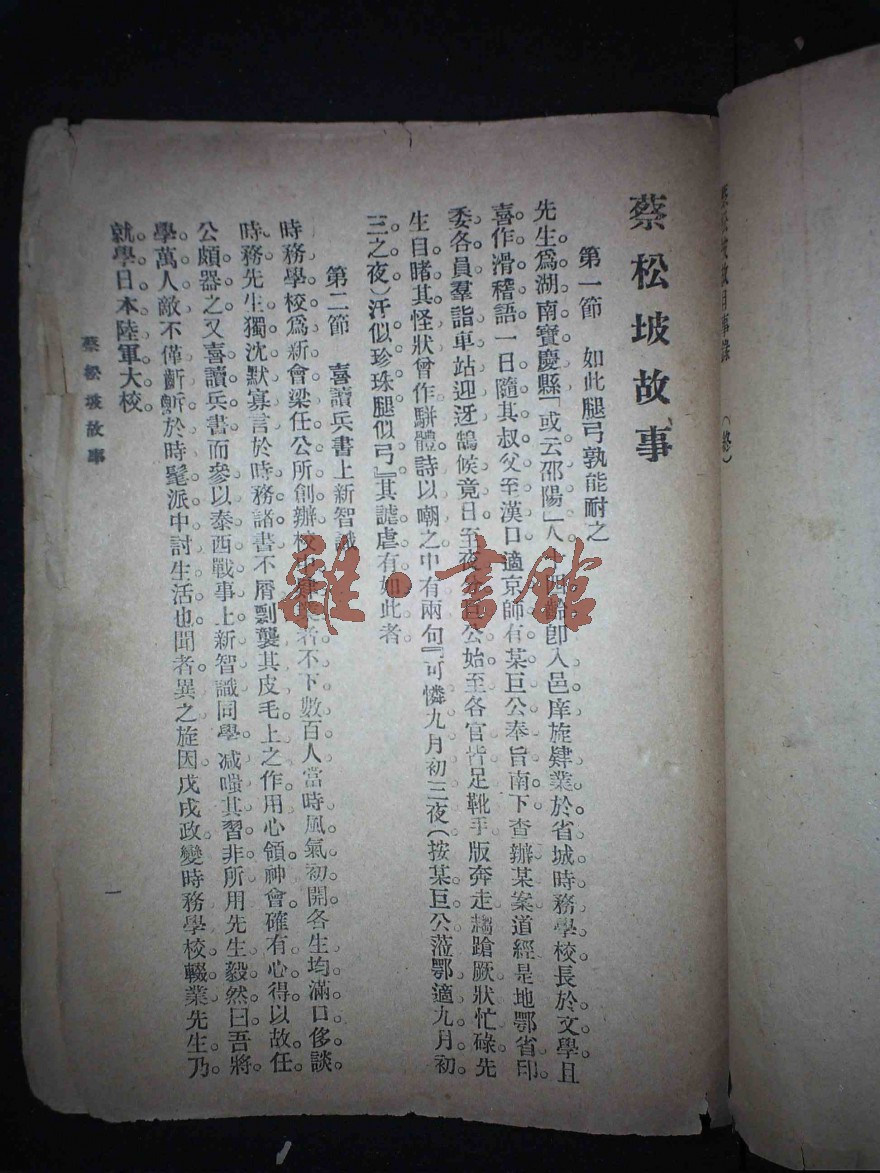 蔡松坡故事
第一節　如此腿弓孰能耐之
先生爲湖南寶慶縣「或云邵陽」人十四齡卽入邑庠旋肄業於省城時務學校長於文學且
喜作滑稽語一日隨其叔父至漢口適京師有某巨公奉旨南下查辦某案道經是地鄂省印
委各員羣詣車站迎迓鵠候竟日至夜分巨公始至各官皆足靴手版奔走趨蹌厥狀忙碌先
生目睹其怪狀曾作駢體詩以嘲之中有兩句『可憐九月初三夜（按某巨公蒞鄂適九月初
三之夜）汗似珍珠腿似弓』其謔虐有如此者
第二節　喜讀兵書上新智識
時務學校爲新會梁任公所創辦校中肄業者不下數百人當時風氣初開各生均滿口侈談
時務先生獨沈默寡言於時務諸書不屑剽襲其皮毛上之作用心領神會確有心得以故任
公頗器之又喜讀兵書而參以泰西戰事上新智識同學咸嗤其習非所用先生毅然曰吾將
學萬人敵不僅齗齗於時髦派中討生活也聞者異之旋因戊戌政變時務學校輟業先生乃
就學日本陸軍大校
蔡松坡故事
一
雜·書館